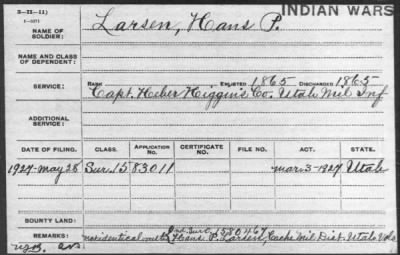 3-21-11)
INDIAN WARS
NAME OF SOLDIER: Larsen, Hans P.
NAME AND CLASS OF DEPENDENT:
SERVICE: RANK ENLISTED 1865 DISCHARGED 1865
Capt. Heber Higgins Co. Utah Mil Inf
ADDITIONAL SERVICE:
DATE OF FILING. CLASS. APPLICATION NO. CERTIFICATE NO. FILE NO. ACT. STATE.
1927-May 28 Sur. 1583011 mar-3-1927 Utah
BOUNTY LAND:
Ind. Sur. 1580467
REMARKS: not identical with Hans P. Larsen, Cache Mil. Dist. Utah Vols